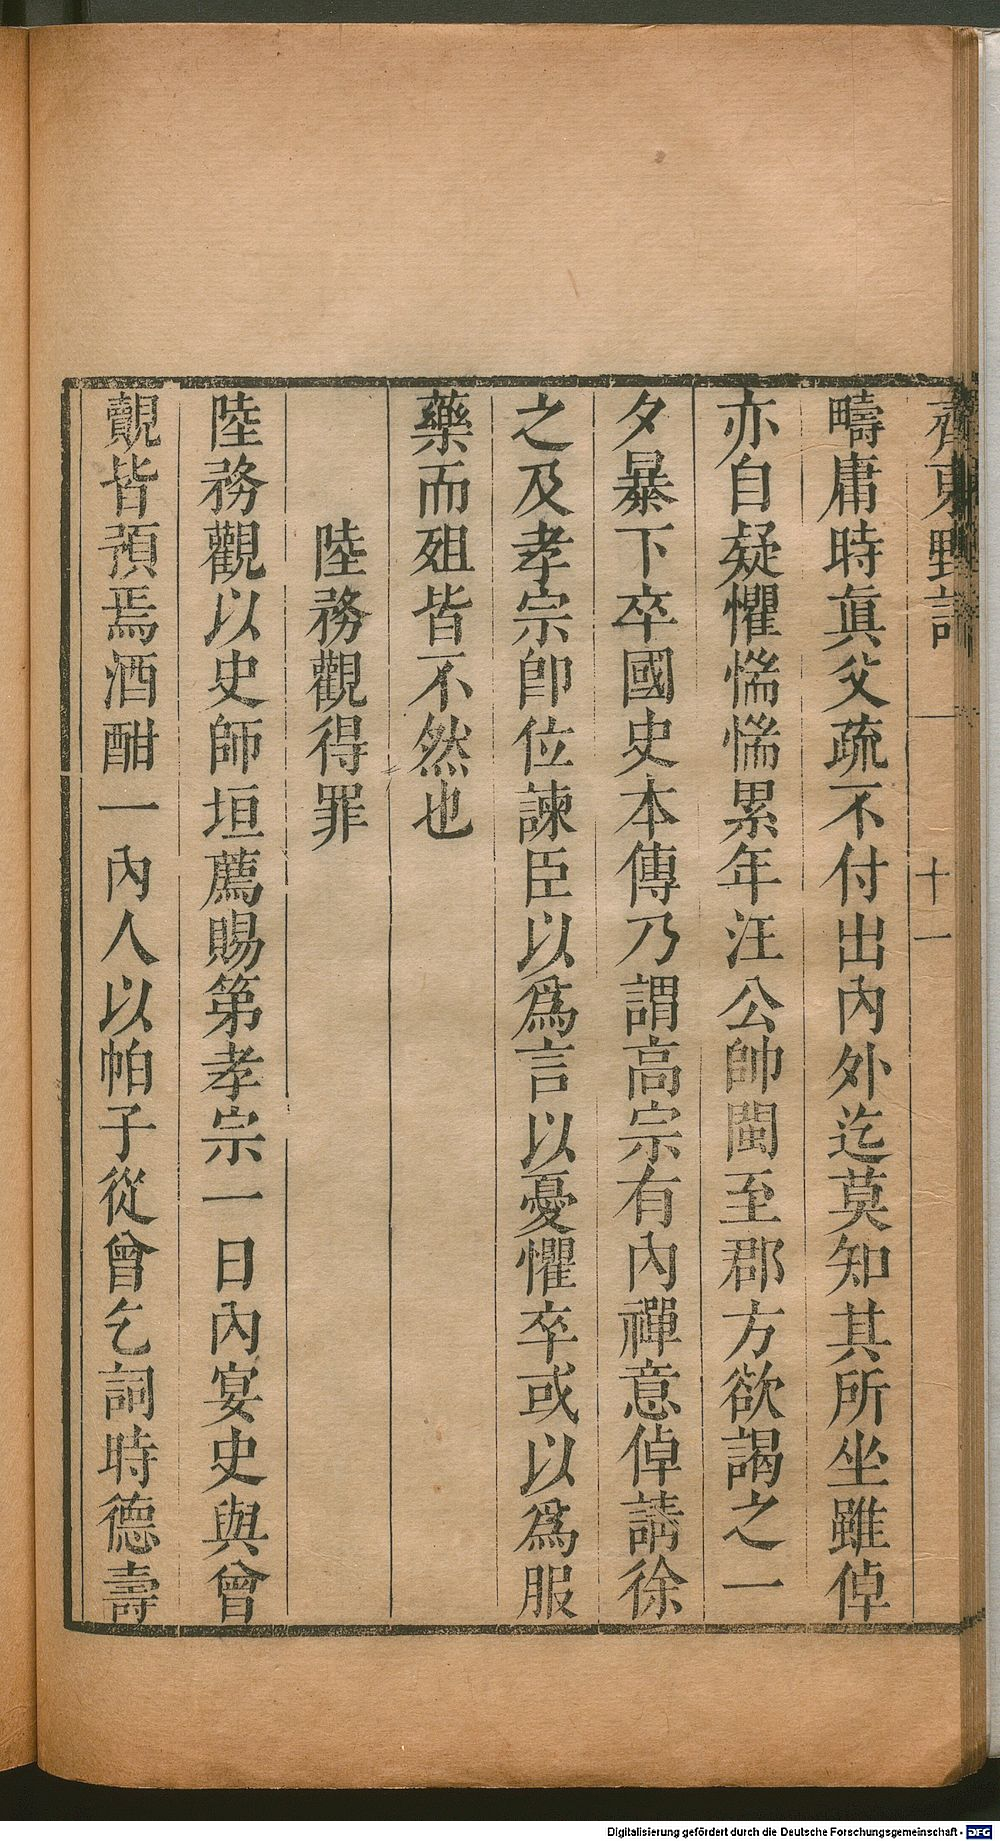 齊東野語 十一
疇庸時眞父疏不付出內外迄莫知其所坐雖倬
亦自疑懼惴惴累年汪公帥閩至郡方欲謁之一
夕暴下卒國史本傳乃謂高宗有內禪意倬請徐
之及孝宗卽位諫臣以爲言以憂懼卒或以爲服
藥而殂皆不然也
陸務觀得罪
陸務觀以史師垣薦賜第孝宗一日內宴史與曾
覿皆預焉酒酣一內人以帕子從曾乞詞時德壽
Digitalisierung gefördert durch die Deutsche Forschungsgemeinschaft - DFG